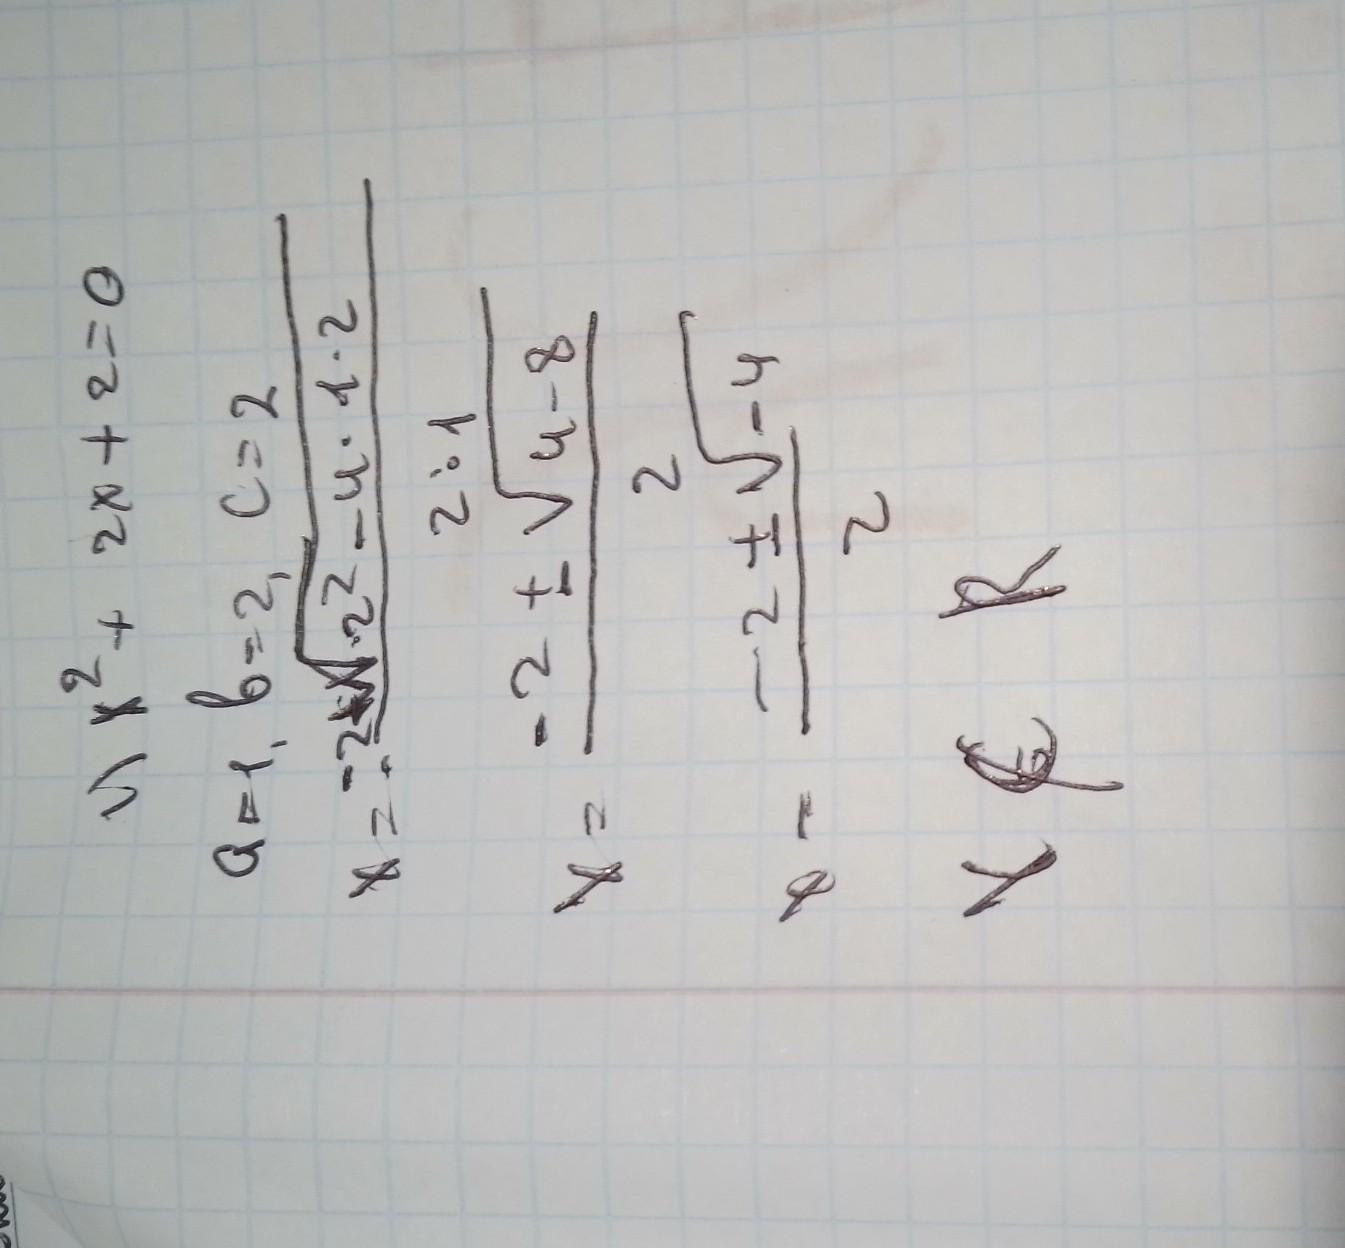 v) x² + 2x + 2 = 0
a = 1, b = 2, c = 2
x = (-2 ± √(2² - 4 · 1 · 2)) / (2 · 1)
x = (-2 ± √(4 - 8)) / 2
x = (-2 ± √(-4)) / 2
x ∉ R